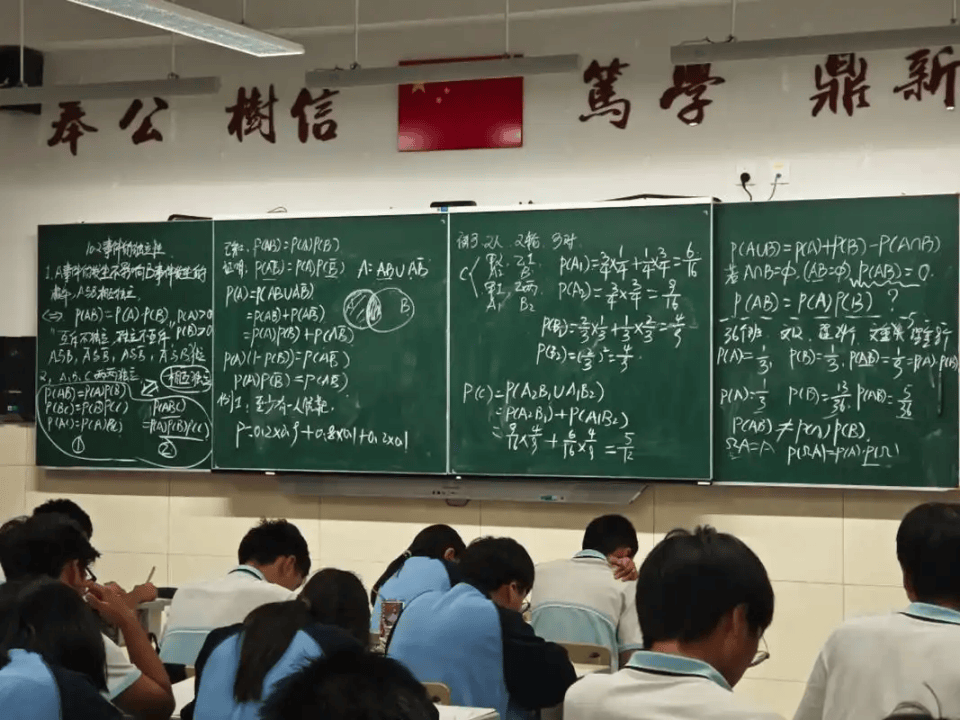 奉公 樹信 篤學 鼎新
10.2事件的独立性
1、A事件的发生不影响B事件发生的
概率, A与B相互独立.
⇔ P(AB)=P(A)P(B), P(A)>0
P(B)>0
2、A、B、C两两独立
相互独立
P(AB)=P(A)P(B)
P(BC)=P(B)P(C)
P(AC)=P(A)P(C)
①
P(ABC)
=P(A)P(B)P(C)
②
已知: P(AB)=P(A)P(B)
证明: P(AB̅)=P(A)P(B̅)
A=AB∪AB̅
A B
P(A)=P(AB∪AB̅)
=P(AB)+P(AB̅)
=P(A)P(B)+P(AB̅)
P(A)(1-P(B))=P(AB̅)
P(A)P(B̅)=P(AB̅)
P=0.2×0.9+0.8×0.1+0.2×0.1
例3 2人 2轮 3对
P(A₁)=3/4×1/4+1/4×3/4=6/16
P(A₂)=3/4×3/4=9/16
P(B₁)=2/3×1/3+1/3×2/3=4/9
P(C)=P(A₂B₁∪A₁B₂)
=P(A₂B₁)+P(A₁B₂)
=9/16×4/9+6/16×4/9=5/12
P(A∪B)=P(A)+P(B)-P(A∩B)
若A∩B=Φ, (AB=Φ), P(AB)=0.
P(AB)=P(A)P(B)?
P(A)=1/3, P(B)=1/3, P(AB)=1/9=P(A)P(B)
P(A)=1/3 P(B)=13/36, P(AB)=5/36
P(AB)≠P(A)P(B).
ΩA=A P(ΩA)=P(A)·P(Ω)